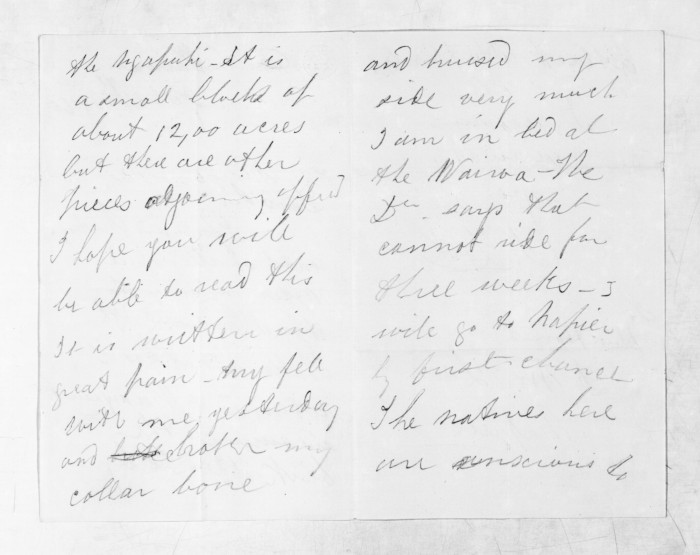 the Ngapuhi - It is
a small block of
about 12,00 acres
but there are other
pieces adjoining offered
I hope you will
be able to read this
It is written in
great pain - fell
with me yesterday
and broken my
collar bone
and bruised my
side very much
I am in bed at
the Wairoa - The
Dr. says that
cannot ride for
three weeks - I
will go to Napier
by first chance
The natives here
are to